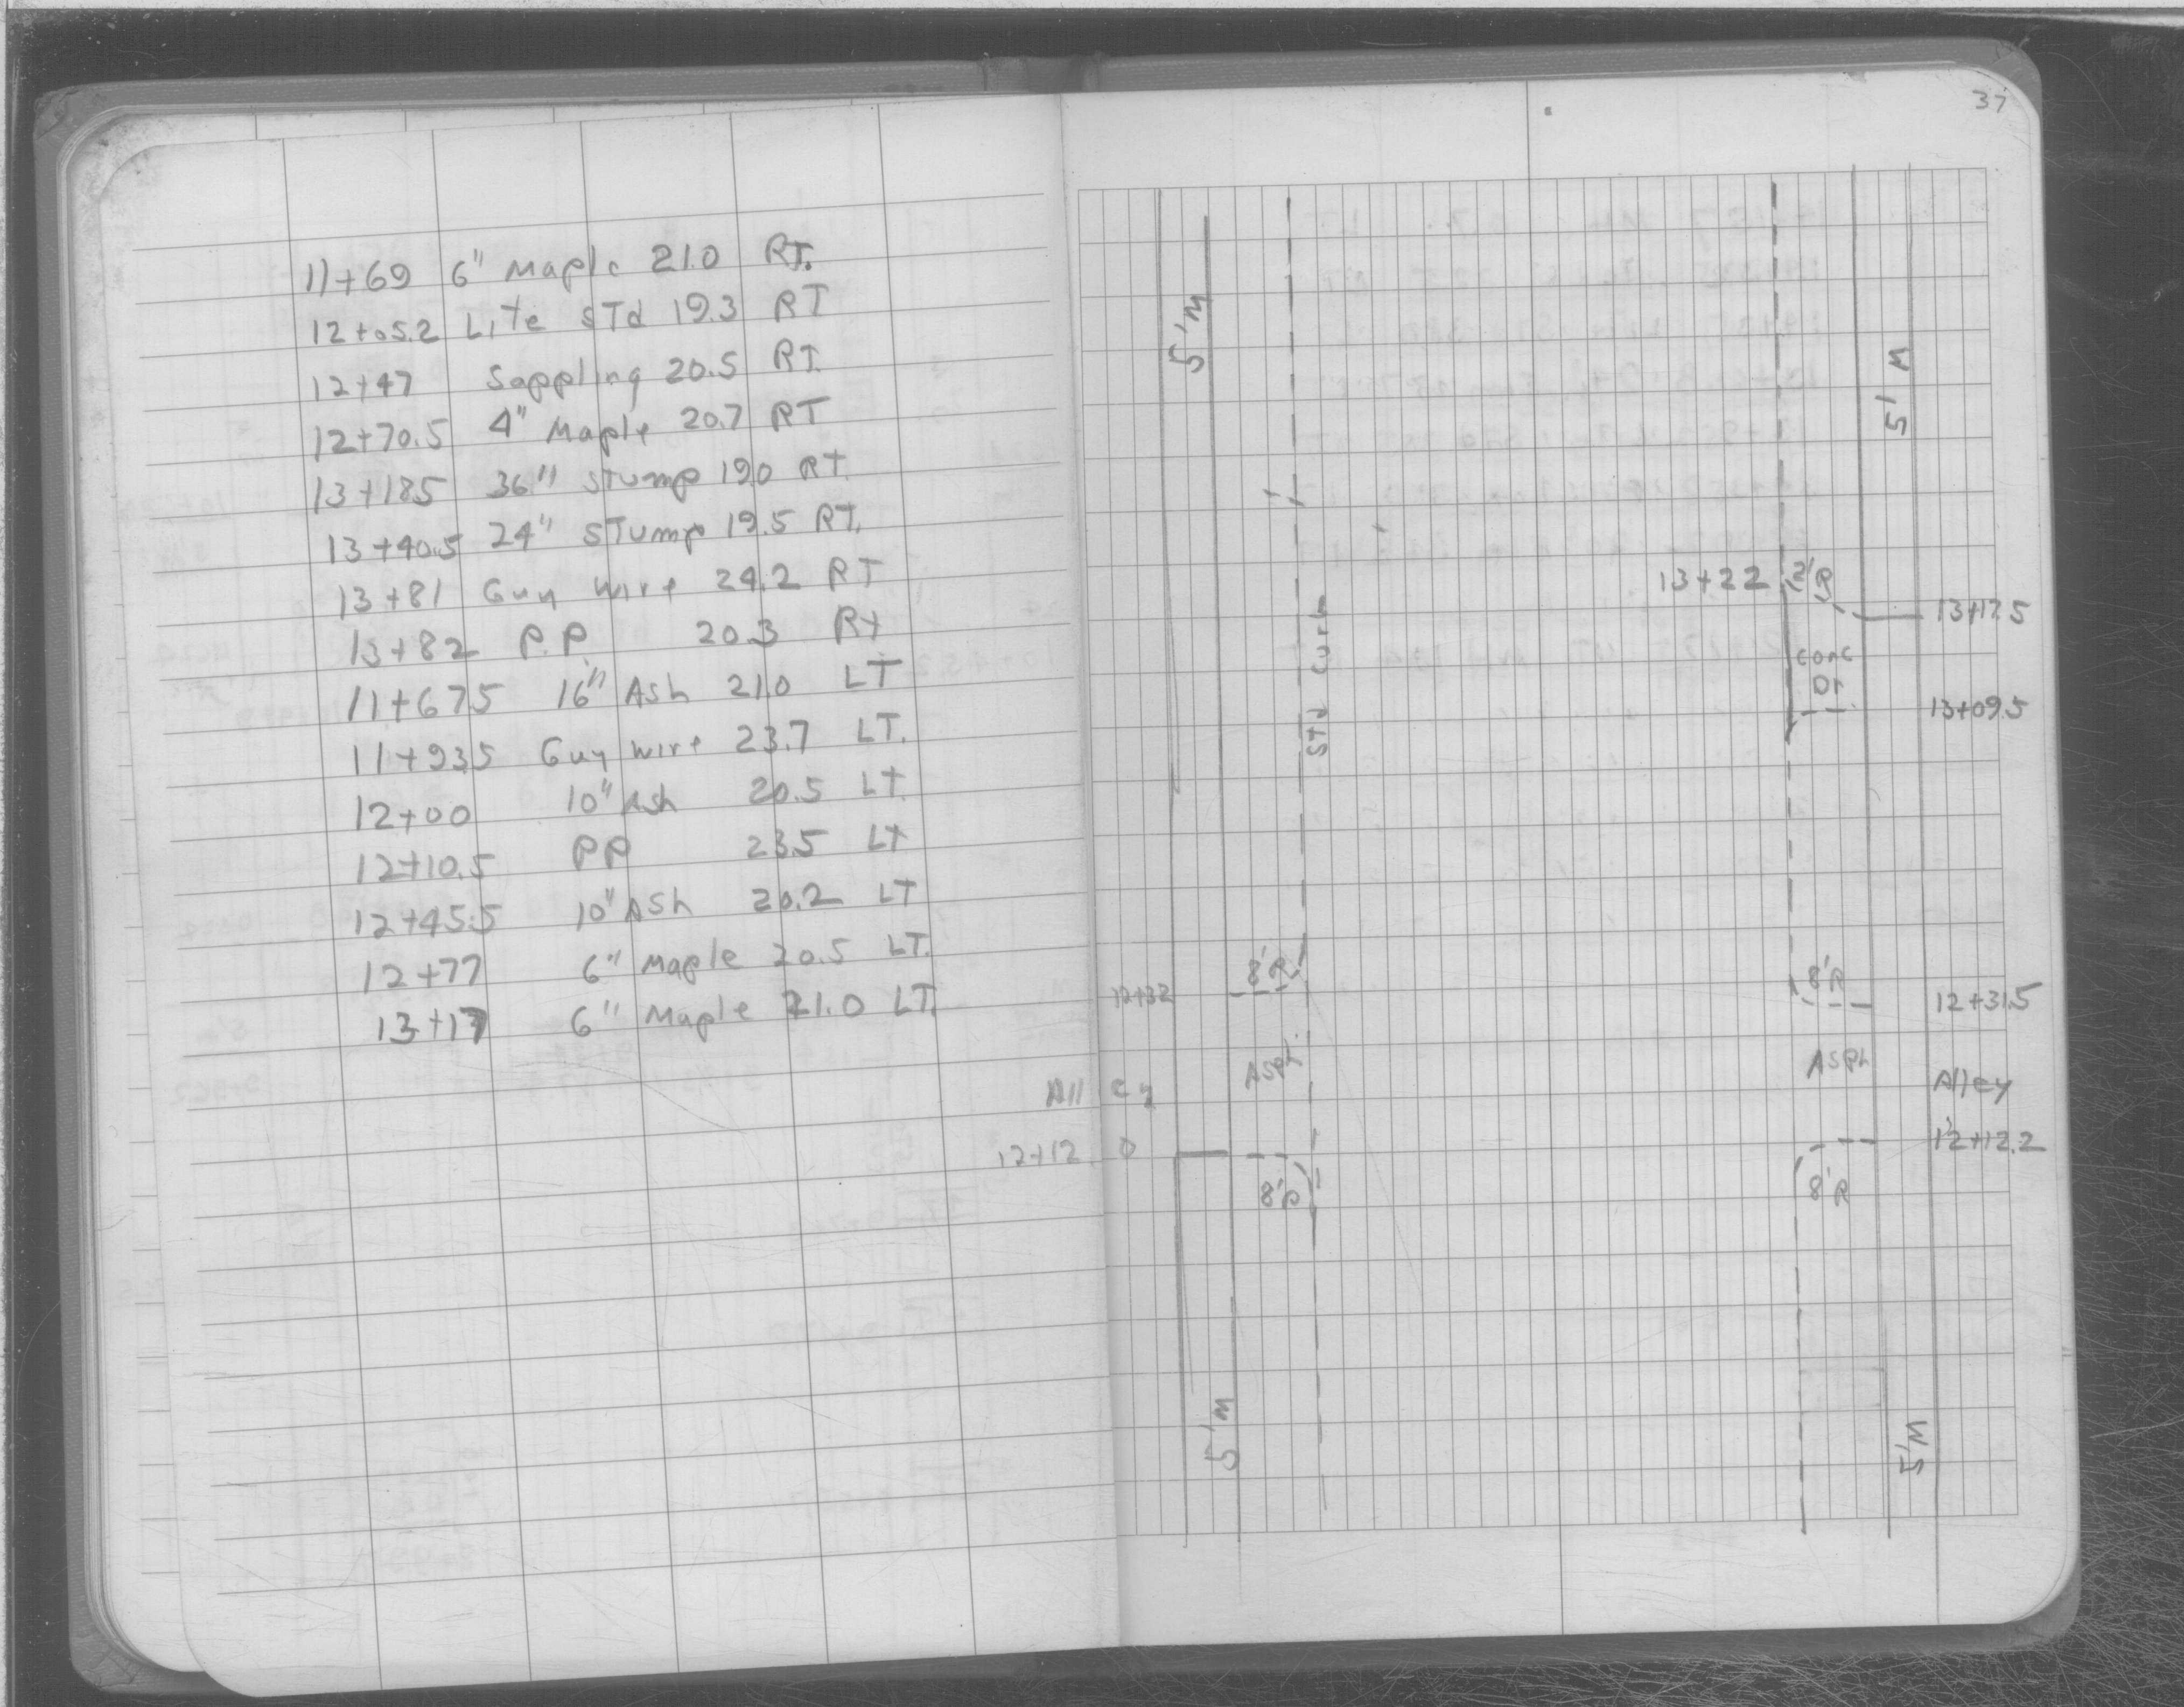 37
11+69 6" Maple 21.0 RT.
12+05.2 Lite STd 19.3 RT
12+47 Sappling 20.5 RT.
12+70.5 4" Maple 20.7 RT
13+18.5 36" STump 19.0 RT.
13+40.5 24" STump 19.5 RT.
13+81 Guy Wire 24.2 RT
13+82 P.P. 20.3 RT
11+67.5 16" Ash 21.0 LT
11+93.5 Guy Wire 23.7 LT.
12+00 10" Ash 20.5 LT.
12+10.5 PP 23.5 LT
12+45.5 10" ASh 20.2 LT
12+77 6" Maple 20.5 LT.
13+17 6" Maple 21.0 LT.
5' M
5' M
13+22 2'R
13+17.5
Std Curb
Conc
Dr
13+09.5
12+32 8'R
8'R 12+31.5
Alley Asph
Asph Alley
12+12.0
12+12.2
8'R
8'R
5' M
5' M